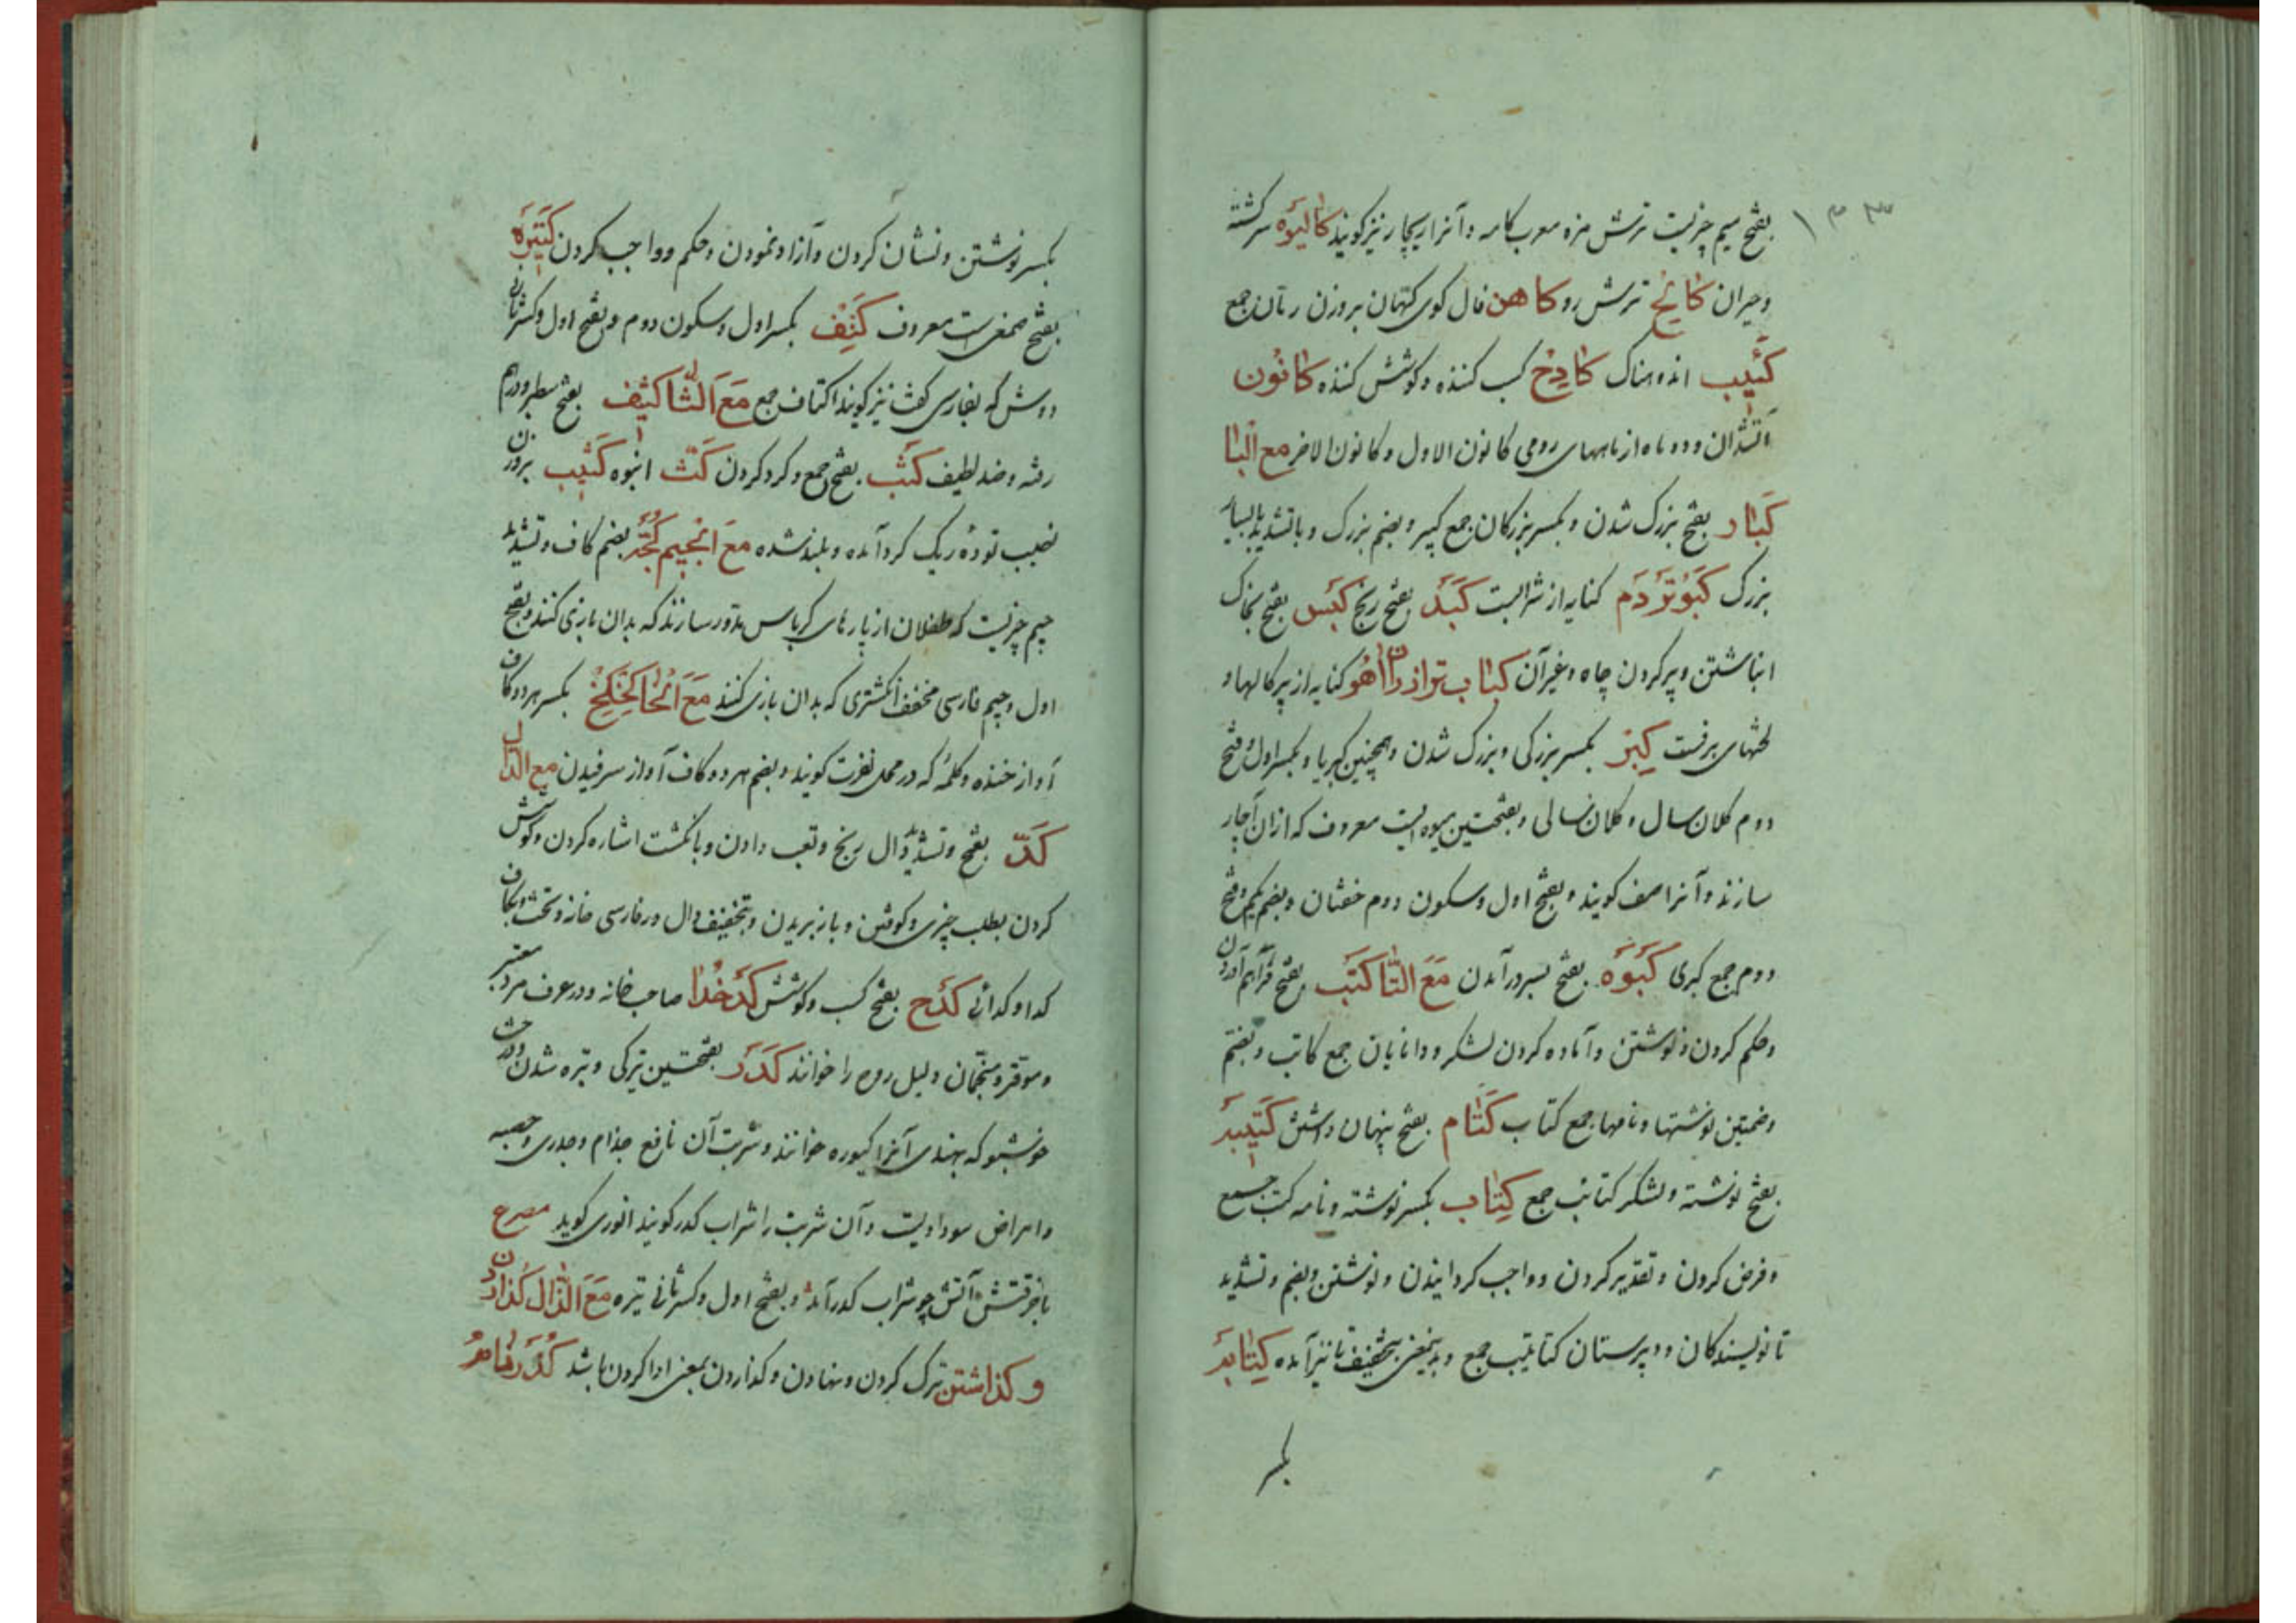 ۱۳۳
بفتح میم چیزیست ترش مزه معرب کامه و آنرا ریچار نیز گویند کالیوه سرگشته
و حیران کالح ترش رو کاهن فال گوی کهان بر وزن رمان جمع
کئیب اندوهناک کادح کسب کننده و کوشش کننده کانون
آتشدان و دو ماه از ماههای رومی کانون الاول و کانون الاخر مع البا
کبار بفتح بزرگ شدن و بکسر بزرگان جمع کبیر و بضم بزرگ و با تشدید با بسیار
بزرگ کبوتر دم کنایه از شرابست کبد بفتح رنج کبس بفتح بخاک
انباشتن و پر کردن چاه و غیر آن کباب تر از ران آهو کنایه از پرکالها و
لختهای برفست کبر بکسر بزرگی و بزرگ شدن و همچنین کبریا و بکسر اول و فتح
دوم کلان سال و کلان سالی و بفتحتین میوه ایست معروف که از ان آچار
سازند و آنرا صف گویند و بفتح اول و سکون دوم خفتان و بضم یکم و فتح
دوم جمع کبری کبوه بفتح بسر در آمدن مع التا کتب بفتح فراهم آوردن
و حکم کردن و نوشتن و آماده کردن لشکر و دانایان جمع کاتب و بضم
و ضمتین نوشتها و نامها جمع کتاب کتام بفتح پنهان داشتن کتیبه
بفتح نوشته و لشکر کتائب جمع کتاب بکسر نوشته و نامه کتب جمع
و فرض کردن و تقدیر کردن و واجب گردانیدن و نوشتن و بضم و تشدید
تا نویسندگان و دبیرستان کتاتیب جمع و بدینمعنی بتخفیف تا نیز آمده کتابه
بکسر
بکسر نوشتن و نشان کردن و آزاد نمودن و حکم و واجب کردن کتیره
بفتح صمغی است معروف کتف بکسر اول و سکون دوم و بفتح اول و کسر ثانی
دوش که بفارسی کفت نیز گویند اکتاف جمع مع الثا کثیف بفتح سطبر و درهم
رفته و ضد لطیف کثب بفتح جمع و گرد کردن کث انبوه کثیب بر وزن
نصیب توده ریک گرد آمده و بلند شده مع الجیم کجه بضم کاف و تشدید
جیم چیزیست که طفلان از پارهای کرباس مدور سازند که بدان بازی کنند و بفتح
اول و جیم فارسی مخفف انگشتری که بدان بازی کنند مع الخا کخ کخ بکسر هر دو کاف
آواز خنده و کلمه که در محل نفرت گویند و بضم هر دو کاف آواز سرفیدن مع الدال
کد بفتح و تشدید دال رنج و تعب دادن و بانگشت اشاره کردن و کوشش
کردن بطلب چیزی و کوفتن و باز بریدن و بتخفیف دال در فارسی خانه و تخت و بکاف
کدا و کدائی کدح بفتح کسب و کوشش کدخدا صاحب خانه و در عرف مرد معتبر
و موقر و منجمان دلیل روح را خوانند کدر بفتحتین تیرگی و تیره شدن و درخت
خوشبو که بهندی آنرا کیوره خوانند و شربت آن نافع جذام و جدری و حصبه
و امراض سوداویست و آن شربت را شراب کدر گویند انوری گوید مصرع
با خرقتش آتش چو شراب کدر آمد و بفتح اول و کسر ثانی تیره مع الذال کذاردن
و کذاشتن ترک کردن و نهادن و کذاردن بمعنی ادا کردن باشد کذرنامه